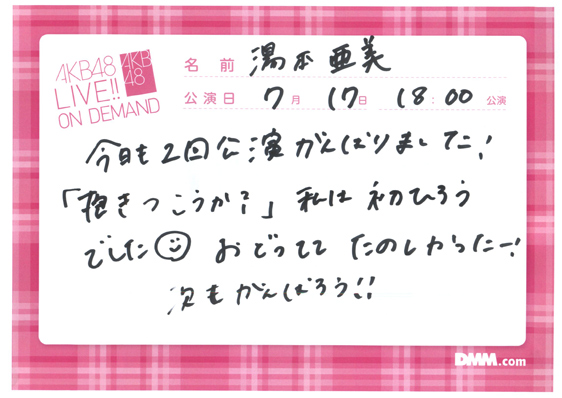 AKB48
LIVE!!
ON DEMAND
AKB
48
名前 湯本亜美
公演日 7月 17日 18:00 公演
今日も2回公演がんばりました!
「抱きつこうか?」私は初ひろう
でした☺ おどってて たのしかったー!
次もがんばろう!!
DMM.com